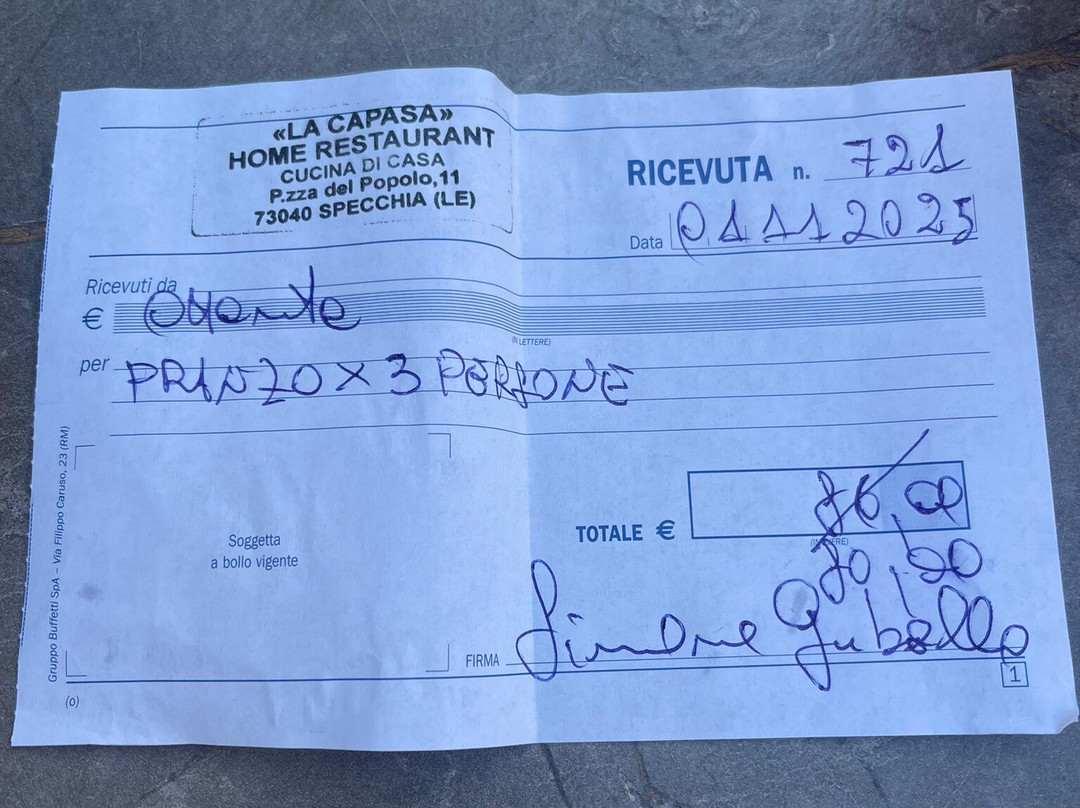 «LA CAPASA»
HOME RESTAURANT
CUCINA DI CASA
P.zza del Popolo,11
73040 SPECCHIA (LE)
RICEVUTA n. 721
Data 01 11 2025
Ricevuti da
€ Ottanta
(IN LETTERE)
per PRANZO X 3 PERSONE
Soggetta
a bollo vigente
TOTALE € 86,00
80,00
FIRMA Simone
1
(o)
Gruppo Buffetti SpA – Via Filippo Caruso, 23 (RM)